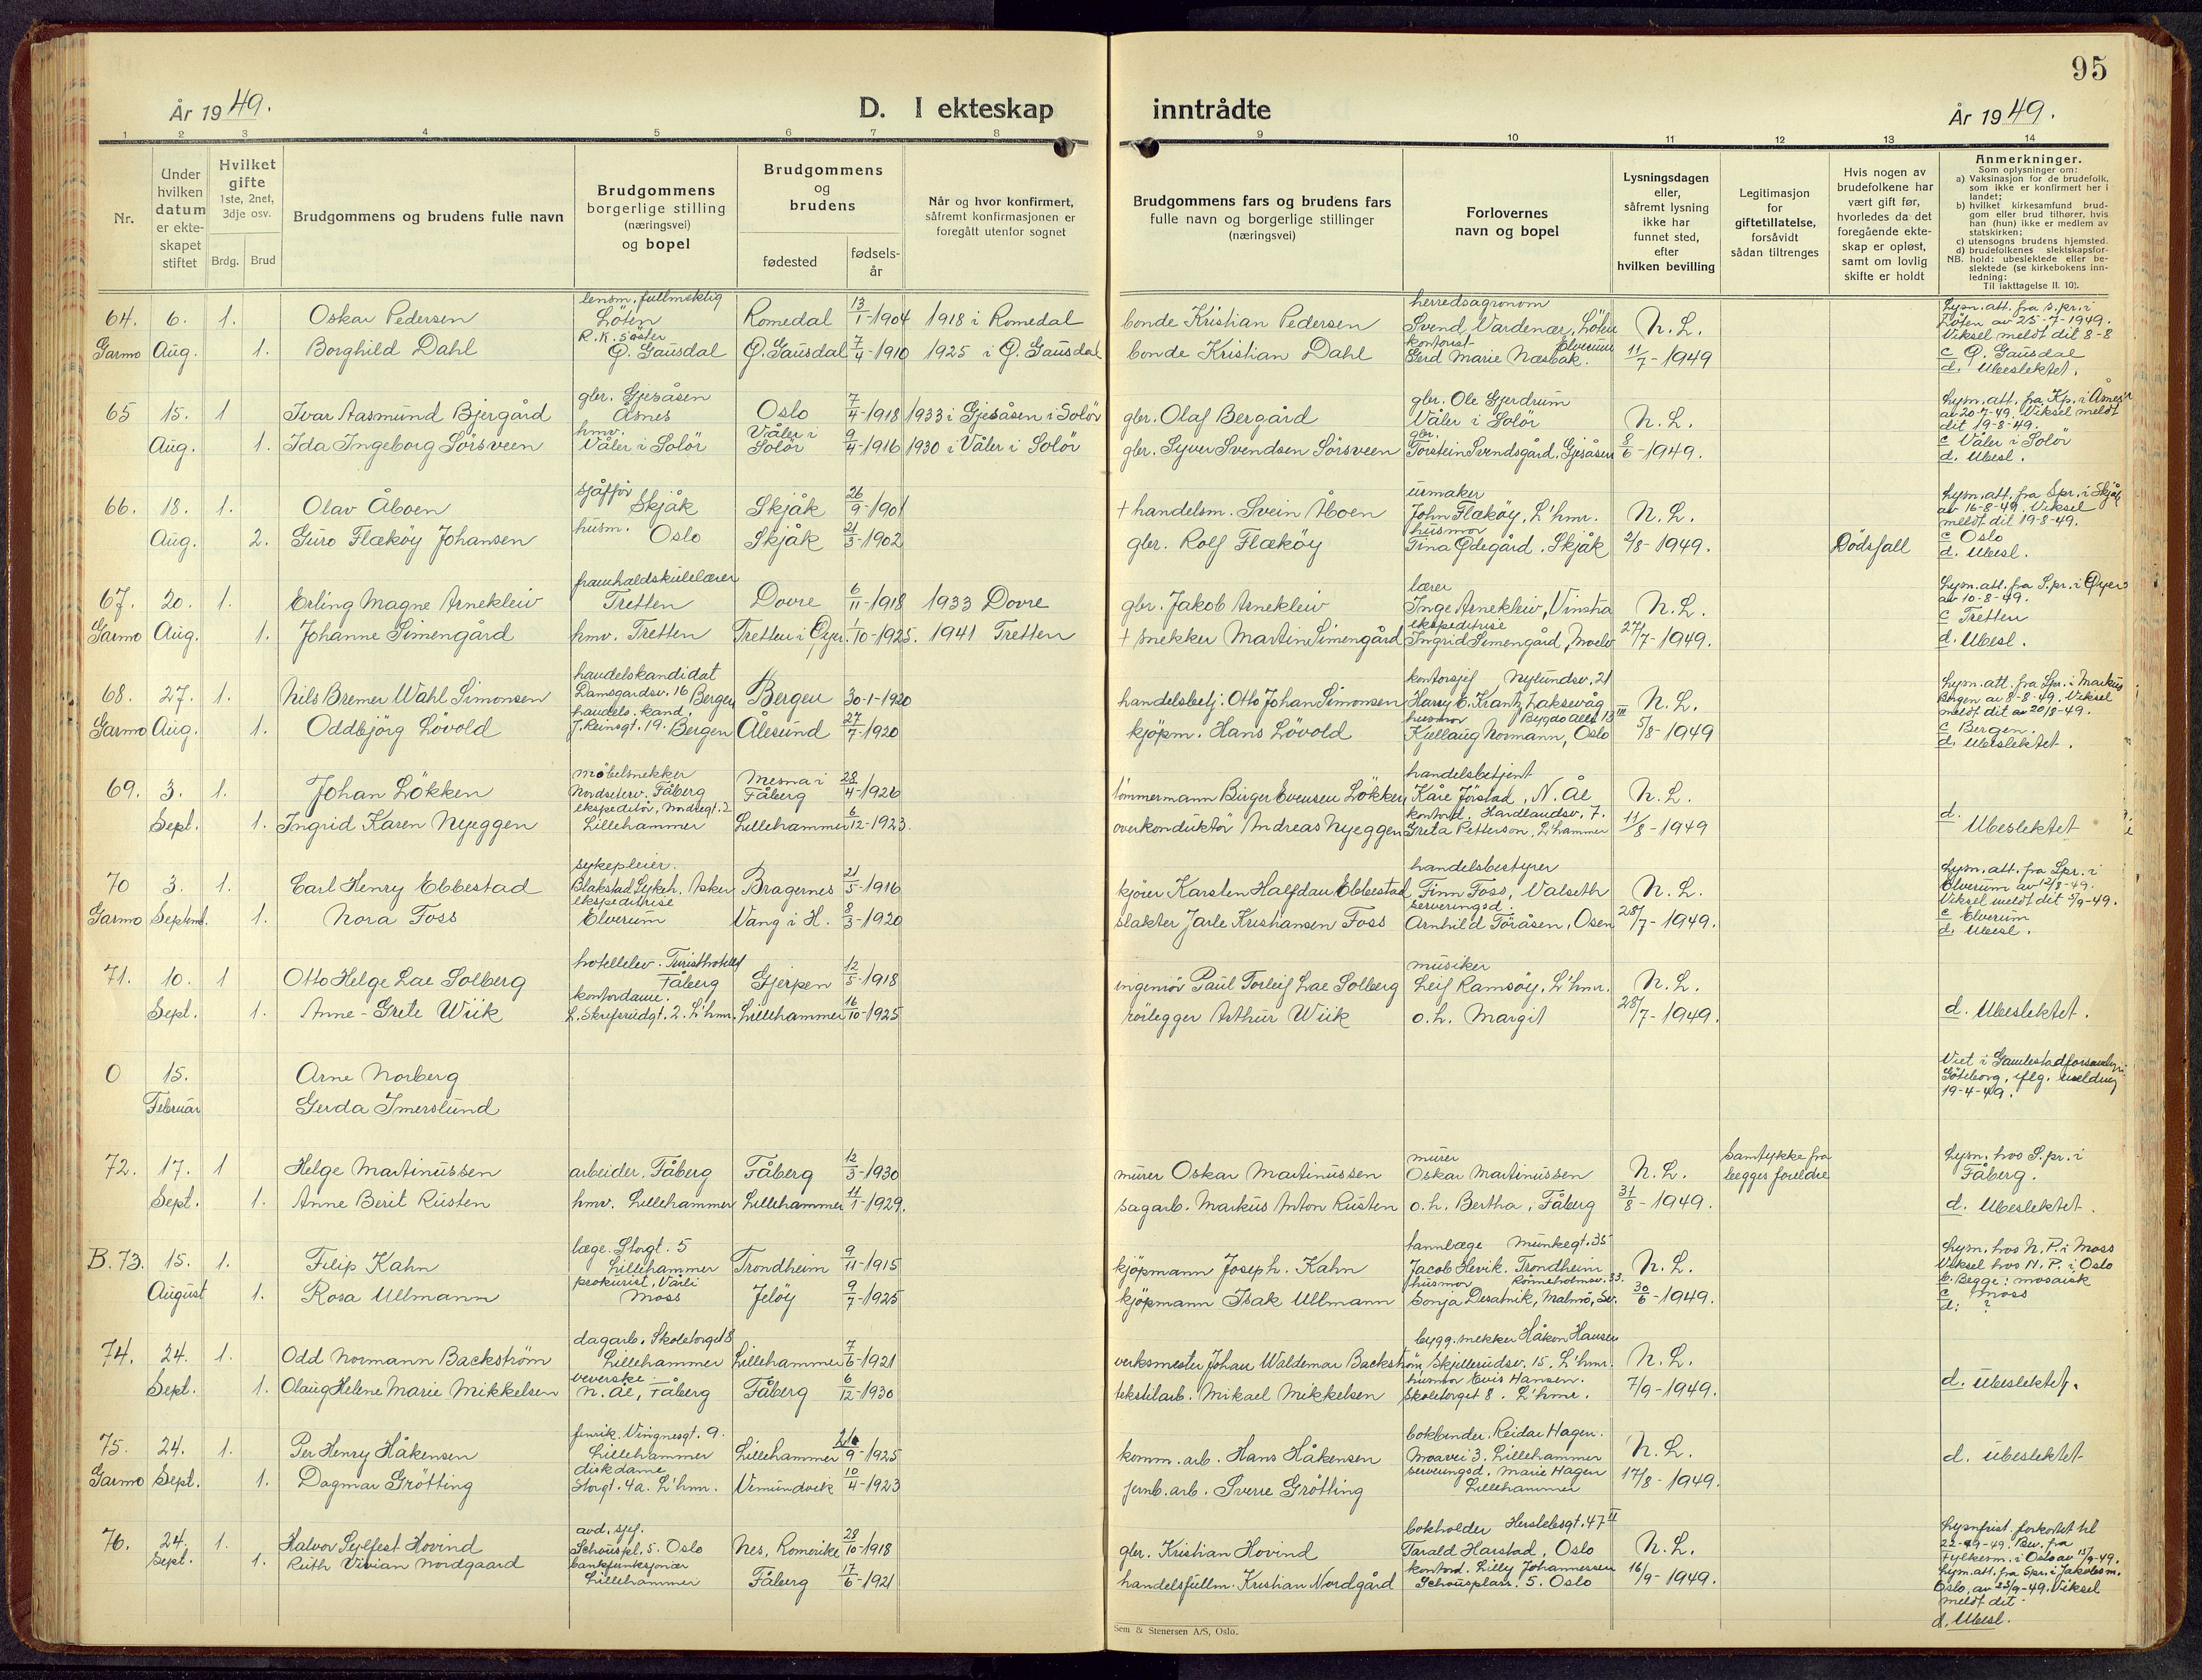 95
År 1949.
D. I ekteskap inntrådte
År 1949.
1 2 3 4 5 6 7 8 9 10 11 12 13 14
Nr.
Under hvilken datum er ekteskapet stiftet
Hvilket gifte 1ste, 2net, 3dje osv.
Brdg. Brud
Brudgommens og brudens fulle navn
Brudgommens borgerlige stilling (næringsvei) og bopel
Brudgommens og brudens
fødested
fødselsår
Når og hvor konfirmert, såfremt konfirmasjonen er foregått utenfor sognet
Brudgommens fars og brudens fars fulle navn og borgerlige stillinger (næringsvei)
Forlovernes navn og bopel
Lysningsdagen eller, såfremt lysning ikke har funnet sted, efter hvilken bevilling
Legitimasjon for giftetillatelse, forsåvidt sådan tiltrenges
Hvis nogen av brudefolkene har vært gift før, hvorledes da det foregående ekteskap er opløst, samt om lovlig skifte er holdt
Anmerkninger.
Som oplysninger om:
a) Vaksinasjon for de brudefolk, som ikke er konfirmert her i landet;
b) hvilket kirkesamfund brudgom eller brud tilhører, hvis han (hun) ikke er medlem av statskirken;
c) utensogns brudens hjemsted.
d) brudefolkenes slektskapsforhold: ubeslektede eller beslektede (se kirkebokens innledning:
NB.
Til iakttagelse II. 10).
64. 6. 1. Oskar Pedersen lensm. fullmektig Löten Romedal 13/1-1904 1918 i Romedal bonde Kristian Pedersen herredsagronom Svend Vardenær, Löten N. L.
Garmo Aug. 1. Borghild Dahl R.K. söster Ö. Gausdal Ö. Gausdal 7/4-1910 1925 i Ö. Gausdal bonde Kristian Dahl kontorist Elverum Gerd Marie Næsbak. 11/7-1949
Lysn. att. fra s.pr. i Löten av 25-7-1949. Viksel meldt dit 8-8
c Ö. Gausdal
d. Ubeslektet.
65 15. 1 Ivar Aasmund Bjergård gbr. Gjesåsen Åsnes Oslo 7/4-1918 1933 i Gjesåsen i Solör gbr. Olaf Bergård gbr. Ole Gjerdrum Våler i Solör N. L.
Aug. 1. Ida Ingeborg Sörsveen hmv. Våler i Solör Våler i Solör 9/4-1916 1930 i Våler i Solör gbr. Syver Svendsen Sörsveen gbr. Torstein Svendsgård, Gjesåsen 8/6-1949.
Lysn. att. fra Kp. i Åsnes av 20-7-49. Viksel meldt dit 19-8-49.
c Våler i Solör
d. Ubesl.
66. 18. 1. Olav Åboen sjåffør Skjåk Skjåk 26/9-1901 + handelsm. Svein Åboen urmaker John Flækøy, L'hmr. N. L.
Aug. 2. Guro Flækøy Johansen husm. Oslo Skjåk 21/3-1902 gbr. Rolf Flækøy husmor Tina Ødegård, Skjåk 2/8-1949. Dödsfall
Lysn. att. fra Spr. i Skjåk av 16-8-49. Viksel meldt dit 19-8-49.
c Oslo
d. Ubesl.
67. 20. 1. Erling Magne Arnekleiv framhaldskulelærer Tretten Dovre 6/11-1918 1933 Dovre gbr. Jakob Arnekleiv lærer Inge Arnekleiv, Vinstra N. L.
Garmo Aug. 1. Johanne Simengård hmv. Tretten Tretten i Øyer. 1/10-1925. 1941 Tretten + snekker Martin Simengård ekspeditrise Ingrid Simengård, Moelv 27/7-1949.
Lysn. att. fra S.pr. i Øyer av 10-8-49.
c Tretten
d. Ubesl.
68. 27. 1. Nils Bremer Wahl Simonsen handelskandidat Damsgardsv. 16 Bergen Bergen 30-1-1920 handelsbetj. Otto Johan Simonsen kontorsjef Nylundsv. 21 Harry E. Krantz, Laksevåg N. L.
Garmo Aug. 1. Oddbjörg Lövold handels. kand. J. Reinsgt. 19. Bergen Ålesund 27/7-1920 kjöpm. Hans Lövold husmor Bygdö Allé 13 III Kjellaug Normann, Oslo 5/8-1949
Lysn. att. fra Spr. i Markus Bergen av 8-8-49. Viksel meldt dit av 20/8-49.
c Bergen.
d. Ubeslektet.
69. 3. 1. Johan Lökken möbelsnekker Nordseterv. Fåberg Mesna i Fåberg 28/4-1926 tömmermann Birger Evensen Lökken handelsbetjent Kåre Jörstad, N. Ål N. L.
Sept. 1. Ingrid Karen Nyeggen ekspeditör, Nordregt. 2 Lillehammer Lillehammer 6/12-1923. overkonduktör Andreas Nyeggen kontord. Hardlandsv. 7. Greta Petterson, L'hammer 11/8-1949
d. Ubeslektet
70 3. 1. Carl Henry Ebbestad sykepleier. Blakstad Sykeh. Asker Bragernes 21/5-1916 kjörer Karsten Halfdan Ebbestad handelsbestyrer Finn Foss, Valseth N. L.
Garmo Septemb. 1. Nora Foss ekspeditrise Elverum Vang i H. 8/3-1920 slakter Jarle Kristiansen Foss serveringsd. Arnhild Töråsen, Osen 28/7-1949.
Lysn. att. fra Spr. i Elverum av 12/8-49. Viksel meldt dit 5/9-49.
c Elverum
d. Ubesl.
71. 10. 1 Otto Helge Lae Solberg hotellelev. Turisthotell Fåberg Gjerpen 12/5-1918 ingeniör Paul Torleif Lae Solberg musiker Leif Ramsöy, L'hmr. N. L.
Sept. 1. Anne-Grete Wiik kontordame. L. Skrefsrudgt. 2. L'hmr. Lillehammer 16/10-1925 rörlegger Arthur Wiik o.h. Margit 28/7-1949.
d. Ubeslektet.
0 15. Arne Norberg
Februar Gerda Imerslund
Viet i Gamlestadforsamling i Göteborg, iflg. melding 19-4-49.
72. 17. 1 Helge Martinussen arbeider. Fåberg Fåberg 12/3-1930 murer Oskar Martinussen murer Oskar Martinussen N. L. Samtykke fra begges foreldre
Sept. 1. Anne Berit Rusten hmv. Lillehammer Lillehammer 11/1-1929. sagarb. Markus Anton Rusten o.h. Bertha, Fåberg 31/8-1949.
Lysn. hos S.pr. i Fåberg.
d. Ubeslektet.
B. 73. 15. 1. Filip Kahn læge. Storgt. 5 Lillehammer Trondheim 9/11-1915 kjöpmann Joseph. Kahn tannlæge Munkegt. 35 Jacob Hevik. Trondheim N. L.
August 1. Rosa Ullmann prokurist, Vårli Moss Jelöy 9/7-1925 kjöpmann Isak Ullmann husmor Rönneholmsv. 33. Sonja Desatnik, Malmö, Sv. 30/6-1949.
Lysn. hos N. P. i Moss
Viksel hos N. P. i Oslo
b. Begge: mosaisk
c Moss
d: ?
74. 24. 1. Odd Normann Backström dagarb. Skoletorget 8 Lillehammer Lillehammer 7/6-1921 verksmester Johan Waldemar Backström bygg.snekker Håkon Hansen Skjellerudsv. 15. L'hmr. N. L.
Sept. 1. Olaug Helene Marie Mikkelsen veverske. N. Ål, Fåberg Fåberg 6/12-1930 tekstilarb. Mikael Mikkelsen husmor Evis Hansen. Skoletorget 8. L'hmr. 7/9-1949.
d. Ubeslektet.
75. 24. 1. Per Henry Håkensen fenrik. Vingnesgt. 9. Lillehammer Lillehammer 9-1925 komm. arb. Hans Håkensen bokbinder. Reidar Hagen. Moavei 3. Lillehammer N. L.
Garmo Sept. 1. Dagmar Grötting diskdame Storgt. 4a. L'hmr. Vemundvik 10/4-1923 jernb. arb. Sverre Grötting serveringsd. Marie Hagen Lillehammer 17/8-1949.
d. ubeslektet
76. 24. 1. Halvor Sylfest Hovind avd. sjef. Schouspl. 5. Oslo Nes, Romerike 28/10-1918 gbr. Kristian Hovind bokholder Herslebsgt. 47 II Tarald Harstad, Oslo N. L.
Sept. 1. Ruth Vivian Nordgaard bankfunksjonær Lillehammer Fåberg 17/6-1921 handelsfullm. Kristian Nordgård kontord. Lilly Johannessen Schousplass. 5. Oslo 16/9-1949.
Lysnfrist. forkortet til 22-9-49. Bev. fra Fylkesm. i Oslo av 15/9-49. Lysn. att. fra Spr. i Jakobs m. Oslo, av 23/9-49. Viksel meldt dit.
d. Ubesl.
Sem & Stenersen A/S, Oslo.